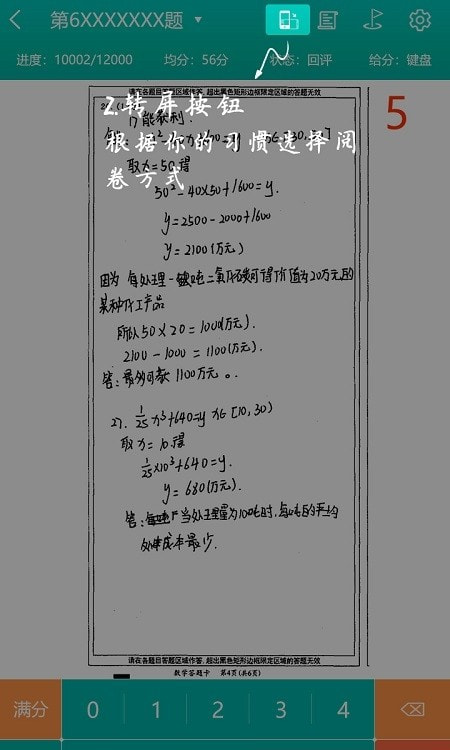 第6XXXXXXX题
进度：10002/12000 均分：56分 状态：回评 给分：键盘
请在各题目答题区域作答，超出黑色矩形边框限定区域的答题无效
5
2.转屏按钮
根据你的习惯选择阅
卷方式
取x=50得
50²-40×50+1600=y.
y=2500-2000+1600
y=2100(万元)
因为 每处理一吨二氧化碳可得价值为20万元的
某种化工产品
所以50×20=1000(万元).
2100-1000=1100(万元).
答：最多可获1100万元。
27. 1/25 x³+640=y x∈[10,30)
取x=10得
1/25×10³+640=y.
y=680(万元).
答：当处理量为100吨时，每吨的平均
处理成本最少.
请在各题目答题区域作答，超出黑色矩形边框限定区域的答题无效
数学答题卡 第4页(共6页)
满分 0 1 2 3 4